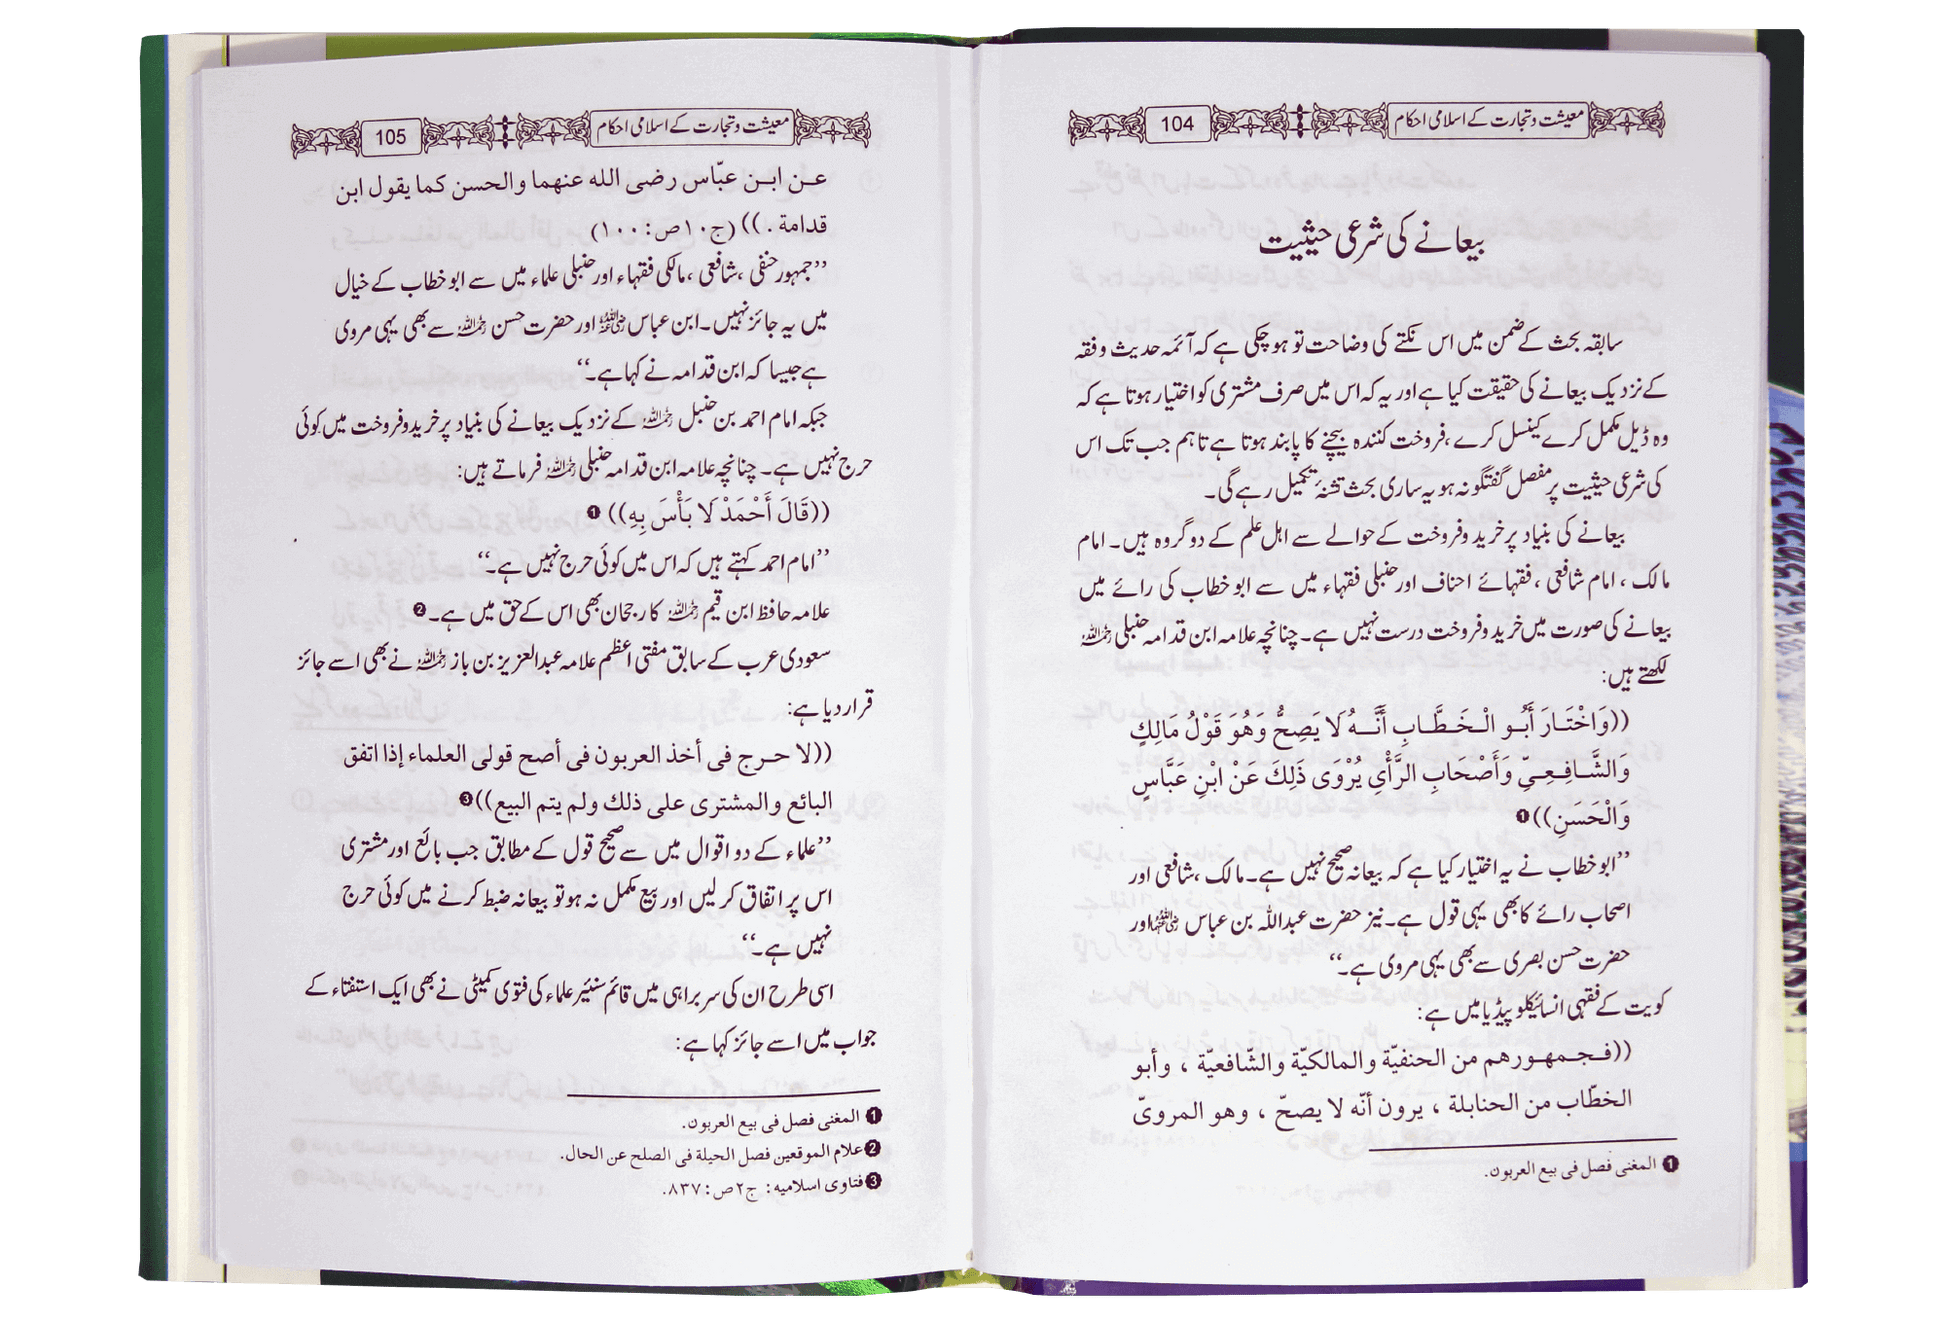 معیشت و تجارت کے اسلامی احکام
104
بیعانے کی شرعی حیثیت
سابقہ بحث کے ضمن میں اس نکتے کی وضاحت تو ہو چکی ہے کہ آئمہ حدیث و فقہ
کے نزدیک بیعانے کی حقیقت کیا ہے اور یہ کہ اس میں صرف مشتری کو اختیار ہوتا ہے کہ
وہ ڈیل مکمل کرے کینسل کرے، فروخت کنندہ بیچنے کا پابند ہوتا ہے تاہم جب تک اس
کی شرعی حیثیت پر مفصل گفتگو نہ ہو یہ ساری بحث تشنۂ تکمیل رہے گی۔
بیعانے کی بنیاد پر خرید و فروخت کے حوالے سے اہل علم کے دو گروہ ہیں۔ امام
مالک، امام شافعی، فقہائے احناف اور حنبلی فقہاء میں سے ابو خطاب کی رائے میں
بیعانے کی صورت میں خرید و فروخت درست نہیں ہے۔ چنانچہ علامہ ابن قدامہ حنبلی رحمہ اللہ
لکھتے ہیں:
((وَاخْتَارَ أَبُو الْخَطَّابِ أَنَّهُ لَا يَصِحُّ وَهُوَ قَوْلُ مَالِكٍ
وَالشَّافِعِيِّ وَأَصْحَابِ الرَّأْيِ يُرْوَى ذَلِكَ عَنْ ابْنِ عَبَّاسٍ
وَالْحَسَنِ))❶
’’ابو خطاب نے یہ اختیار کیا ہے کہ بیعانہ صحیح نہیں ہے۔ مالک، شافعی اور
اصحاب رائے کا بھی یہی قول ہے۔ نیز حضرت عبداللہ بن عباس رضی اللہ عنہما اور
حضرت حسن بصری سے بھی یہی مروی ہے۔‘‘
کویت کے فقہی انسائیکلو پیڈیا میں ہے:
((فجمهورهم من الحنفيّة والمالكيّة والشّافعيّة ، وأبو
الخطّاب من الحنابلة ، يرون أنّه لا يصحّ ، وهو المروىّ
❶ المغنى فصل فى بيع العربون.
معیشت و تجارت کے اسلامی احکام
105
عن ابن عبّاس رضى الله عنهما والحسن كما يقول ابن
قدامة . )) (ج١٠ص:١٠٠)
’’جمہور حنفی، شافعی، مالکی فقہاء اور حنبلی علماء میں سے ابو خطاب کے خیال
میں یہ جائز نہیں۔ ابن عباس رضی اللہ عنہما اور حضرت حسن رحمہ اللہ سے بھی یہی مروی
ہے جیسا کہ ابن قدامہ نے کہا ہے۔‘‘
جبکہ امام احمد بن حنبل رحمہ اللہ کے نزدیک بیعانے کی بنیاد پر خرید و فروخت میں کوئی
حرج نہیں ہے۔ چنانچہ علامہ ابن قدامہ حنبلی رحمہ اللہ فرماتے ہیں:
((قَالَ أَحْمَدُ لَا بَأْسَ بِهِ))❶
’’امام احمد کہتے ہیں کہ اس میں کوئی حرج نہیں ہے۔‘‘
علامہ حافظ ابن قیم رحمہ اللہ کا رجحان بھی اس کے حق میں ہے۔❷
سعودی عرب کے سابق مفتی اعظم علامہ عبدالعزیز بن باز رحمہ اللہ نے بھی اسے جائز
قرار دیا ہے:
((لا حرج فى أخذ العربون فى أصح قولى العلماء إذا اتفق
البائع والمشترى على ذلك ولم يتم البيع))❸
’’علماء کے دو اقوال میں سے صحیح قول کے مطابق جب بائع اور مشتری
اس پر اتفاق کر لیں اور بیع مکمل نہ ہو تو بیعانہ ضبط کرنے میں کوئی حرج
نہیں ہے۔‘‘
اسی طرح ان کی سربراہی میں قائم سنیئر علماء کی فتوی کمیٹی نے بھی ایک استفتاء کے
جواب میں اسے جائز کہا ہے:
❶ المغنى فصل فى بيع العربون.
❷ علام الموقعين فصل الحيلة فى الصلح عن الحال.
❸ فتاوى اسلاميه: ج٢ص:٨٣٧.